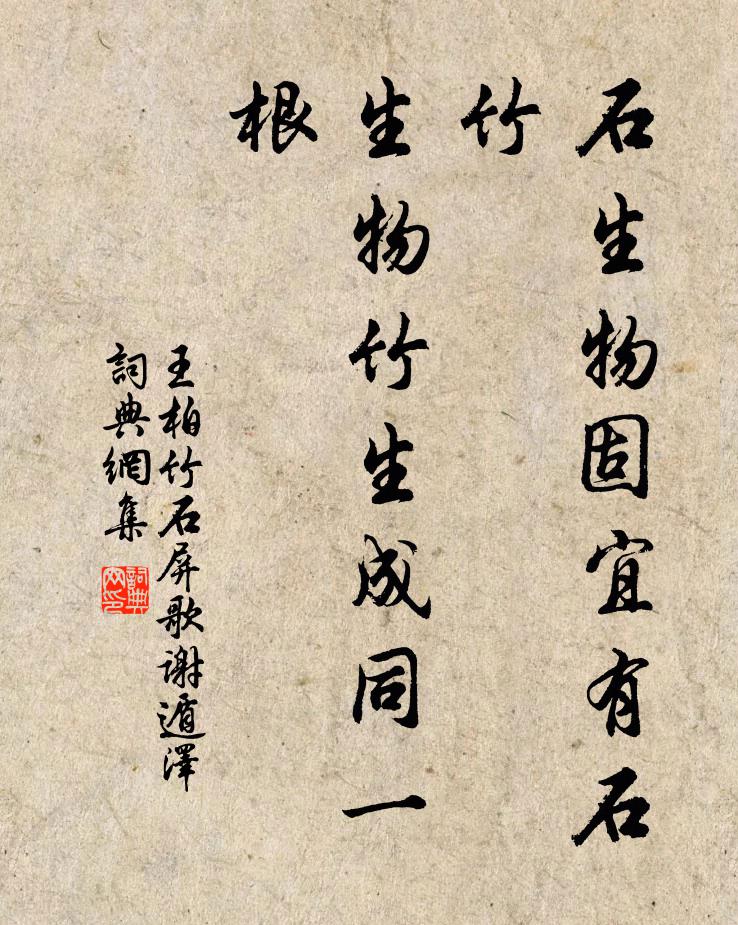 石生物固宜有石
竹
生物竹生成同一
根
王柏竹石屏歌謝遁澤
詞典網集
詞典
网印